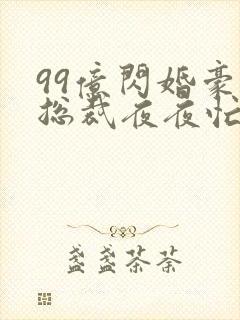 99億閃婚豪
总裁夜夜忙
盏盏茶茶